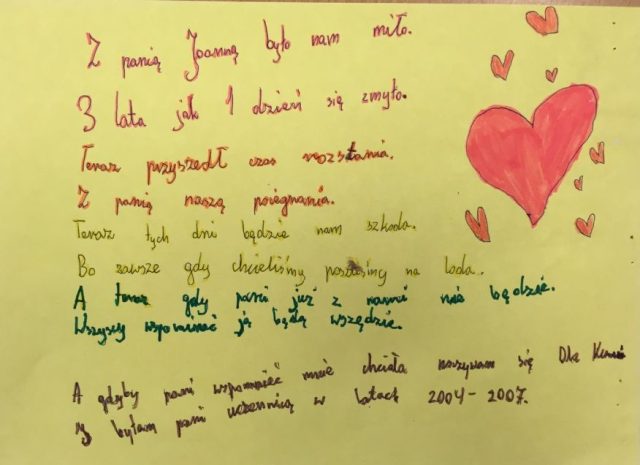 Z panią Joanną było nam miło.
3 lata jak 1 dzień się zmyło.
Teraz przyszedł czas rozstania.
Z panią naszą poiegnania.
Teraz tych dni będzie nam szkoda.
Bo zawsze gdy chcieliśmy poszliśmy na loda.
A teraz gdy pani już z nami nie będzie.
Wszyscy wspominać ją będą wszędzie.
A gdyby pani wspomnieć mnie chciała nazywam się
byłam pani uczennicą w latach 2004-2007.